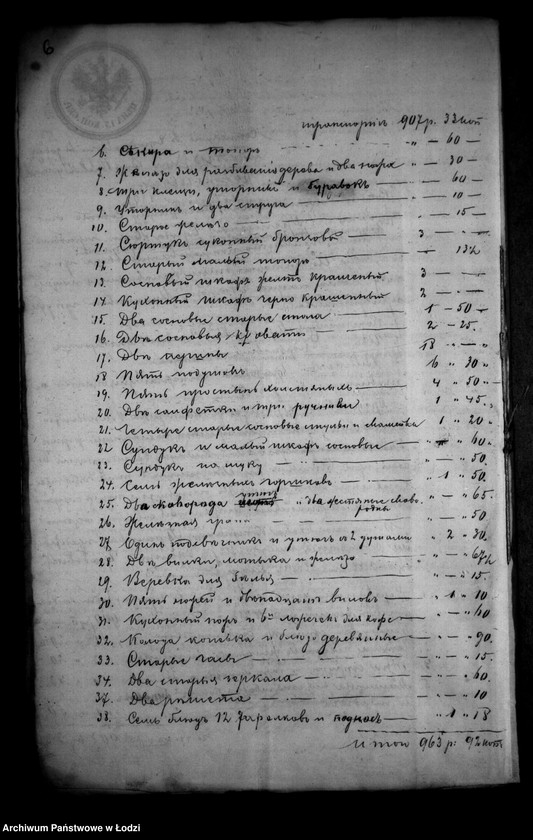 6
транспортъ 907 р. 32 коп
6. Сѣкира и топоръ " — 60 —
7. Желѣзо для разбиванія дерева и два " — 30 —
8. три клещи, и буравокъ — 60 —
9. и два струга — " — 10 —
10. Старое желѣзо — " — 15 —
11. Сюртукъ суконный бронзовый — 3 — —
12. Старый малый — 13½
13. Сосновый шкафъ желто крашеный 3 —
14. Кухонный шкафъ черно крашенный 2 —
15. Два сосновые старые стола — 1 — 50 —
16. Двѣ сосновыя кровати — 2 — 25.
17. Двѣ перины 18 " —
18 Пять подушекъ 6 " 30 "
19. Пять простынь холстяныхъ — 4 " 50 —
20. Двѣ салфетки и три ручники 1 " 45
21. Четыре старые сосновые стулья и 1 " 20 "
22 Сундукъ и малый шкафъ сосновые — " — " 60 —
23. Сундукъ на муку — " — " 50.
24. Семь желѣзныхъ горшковъ — " 1 " 50.
25. Два сковорода " два жестяные сково-
родки " — " 65.
26. Желѣзная " — " 50
27 Одинъ и утюгъ съ 2 душами " 2 " 30.
28. Двѣ вилки, мотыка и желѣзо " — " 67½
29. Веревка для бѣлья — " — " 15.
30. Пять ножей и двѣнадцать вилокъ — " 1 " 10
31. Кухонный ножъ и 6 ложечекъ для кофе — " — " 40
32. Колода и блюдо деревянные — " — " 90.
33. Старые часы — " — " 15.
34. Два старыя зеркала — " — " 60.
37. Два — " — " 10
38. Семь блюдъ 12 тарелковъ и подносъ — " 1 " 18
Итого 963 р. 92 коп
Archiwum Państwowe w Łodzi